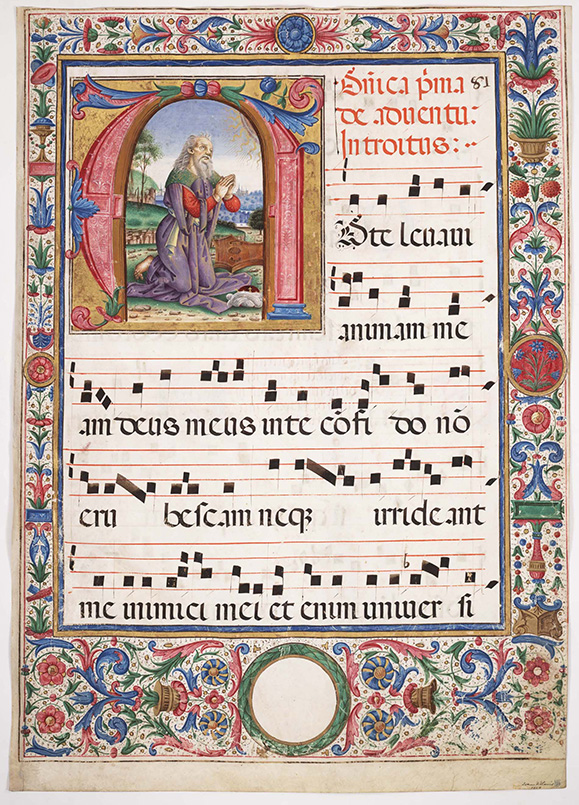 Dñica p̃ma 81
de aduentu:
Introitus:
AD te leuaui
animam me
am deus meus in te cõfi do nõ
eru bescam neqꝫ irride ant
me inimici mei et enim uniuer si